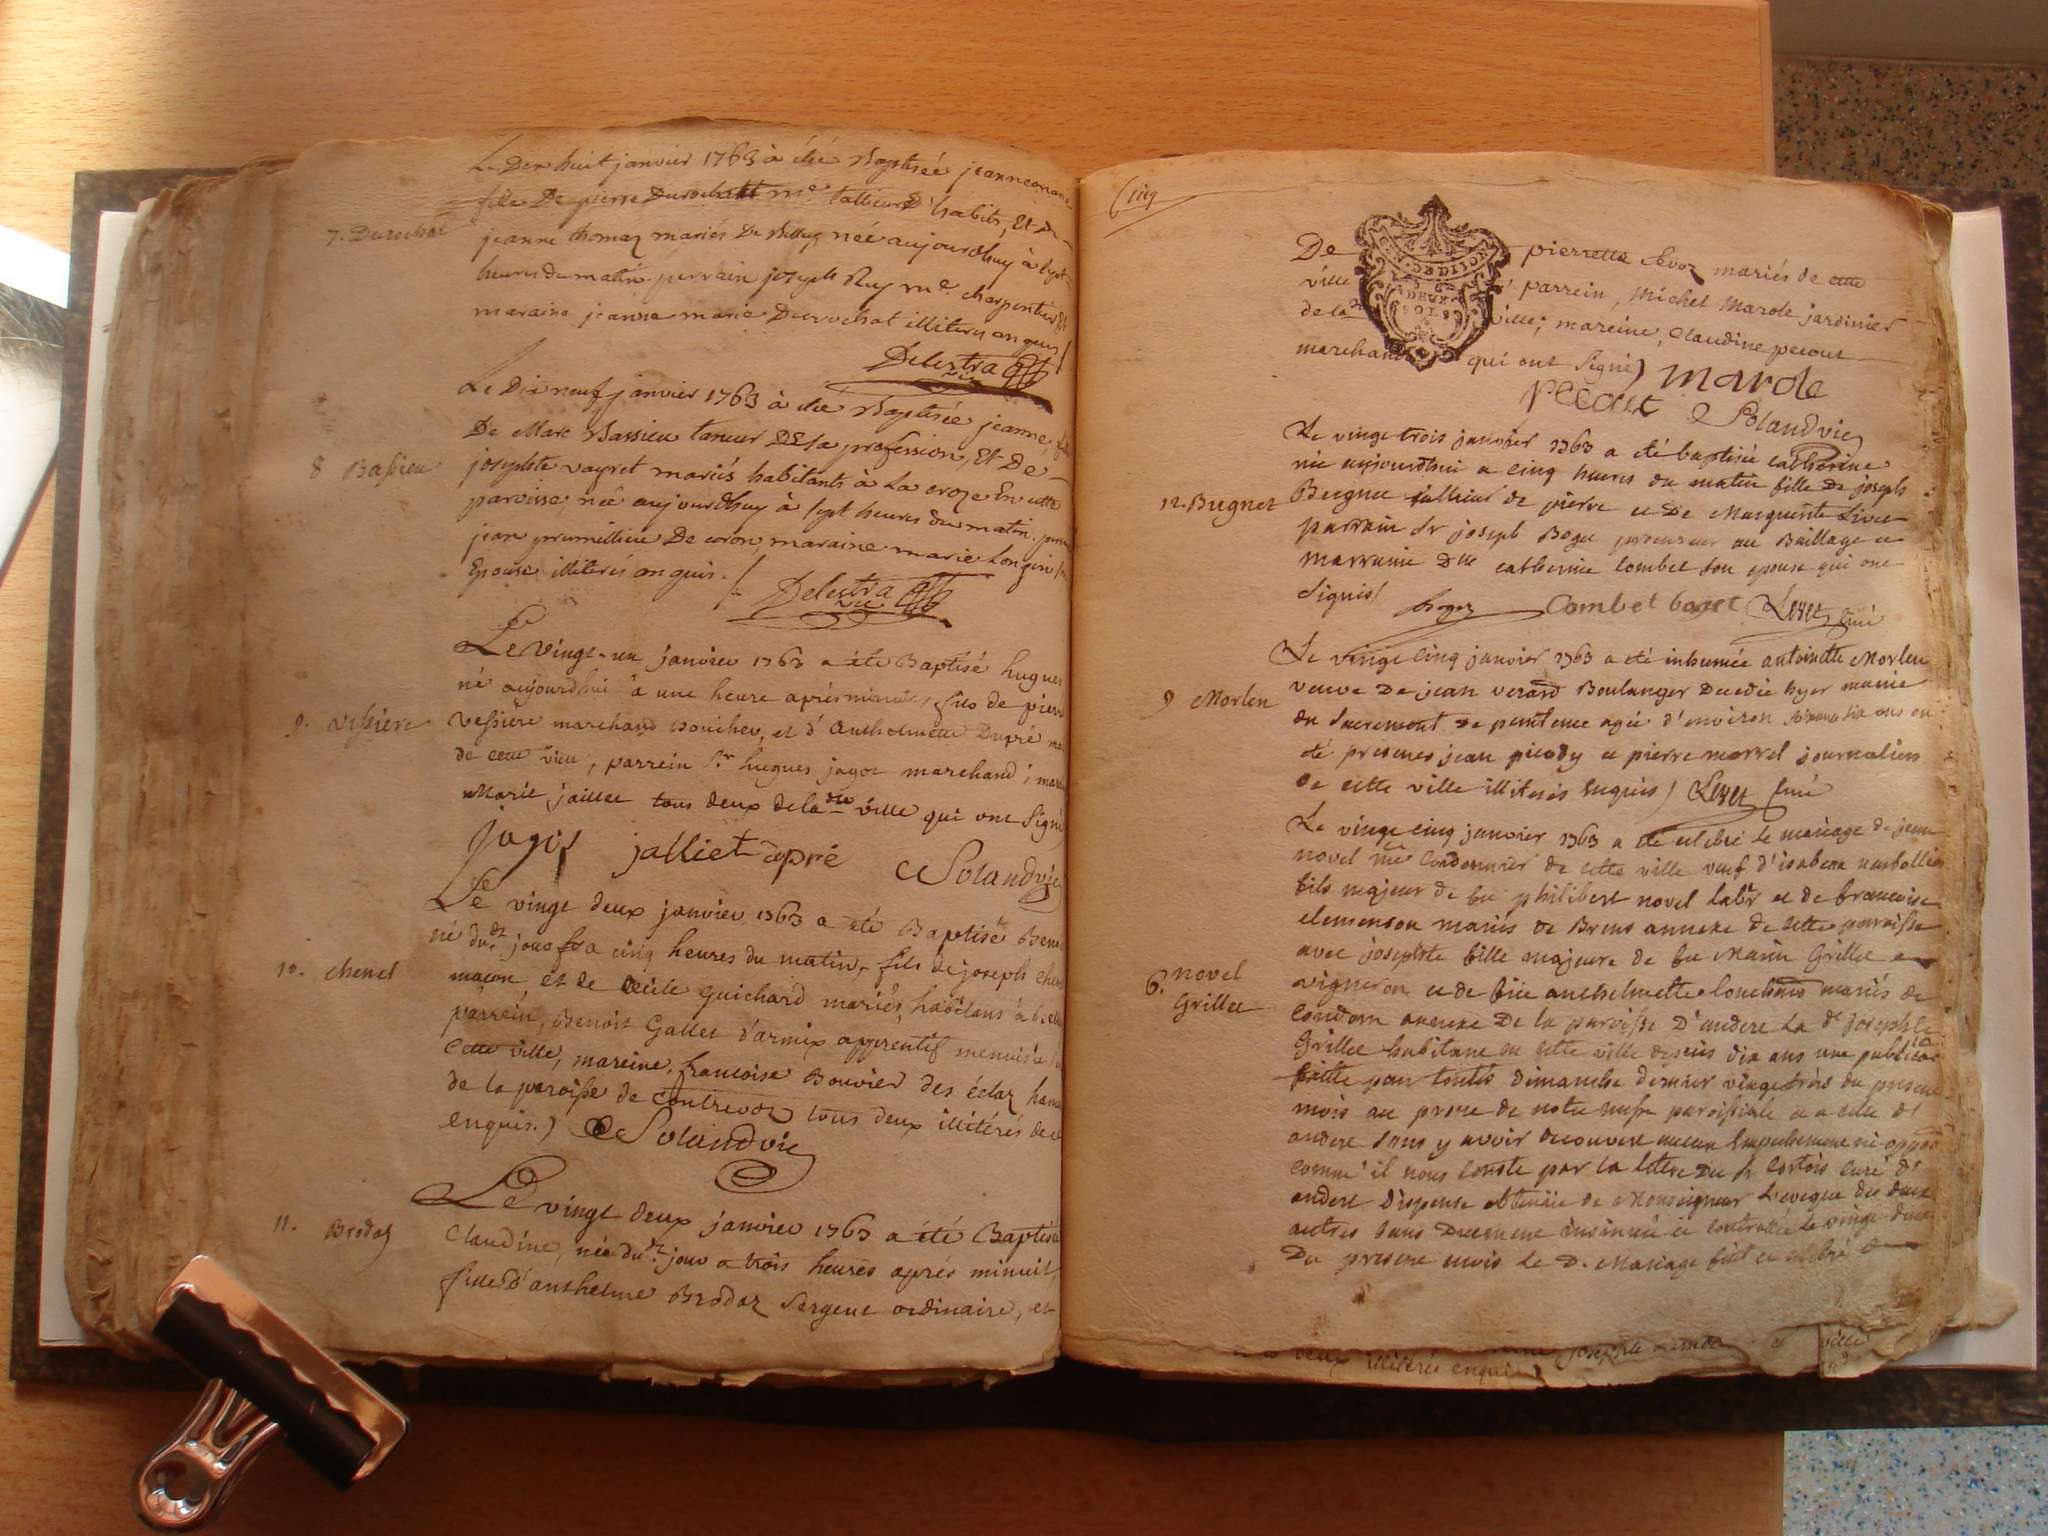 Le Dix huit janvier 1763 à été Baptisée jeanne marie
fille De pierre Durochat me tallieur D'habits, Et De
7. Durochat
jeanne thomaz mariés De née aujourdhuy à sept
heures du matin. perrain joseph Ruy me charpentier Et
maraine jeanne marie Durochat illiterés enquis
Delestra vic
Le Dix neuf janvier 1763 à été Baptisée jeanne fille
De Marc Bassieu taneur DE sa profession, Et De
8 Bassieu
josephte vayret mariés habitants à La croze En cette
paroisse, née aujourdhuy à sept heures du matin.
jean prumillieu De coron maraine marie Longin
Epouse illiterés enquis.
Delestra vic
Le Vingt-un janvier 1763 a été Baptisé hugues
né aujourdhui à une heure aprés minuit, fils de pierre
9. vessiere
vessiere marchand boucher, et d'Anthelmette Dupré
de cette ville, parrein Sr hugues jagot marchand;
Marie jaillet tous deux de la dte ville qui ont signé
jagot jalliet dupré Solandvic
Le vingt deux janvier 1763 a été Baptisé Benoit
né dudt jour a cinq heures du matin, fils de joseph
10. chenel
maçon et de Cécile Guichard mariés, habitans à
parrein, Benoit Gallet d'armix apprentif menuisier
cette ville, mareine, francoise Bouvier des éclaz
de la paroisse de Contrevoz tous deux illitérés de ce
enquis.) Solandvic
Le vingt deux janvier 1763 a été Baptisée
11. Brodaz
Claudine, née dudt jour a trois heures aprés minuit,
fille d'anthelme Brodaz Sergent ordinaire, et
Cinq
De pierrette Sevoz mariés de cette
ville parrein, Michel Marole jardinier
de la ville; mareine, Claudine pecout
marchande qui ont signé) Marole
DEUX
SOLS
Pecout Solandvic
Le vingt trois janvier 1763 a été baptisée catherine
née aujourdhui a cinq heures du matin fille de joseph
12. Bugnet
Bugnet tallieur de pierre et de Marguerite Livet
parrain Sr joseph Boget procureur au Baillage et
marraine Dlle catherine Combet son epouse qui ont
signés)
boget Combet boget Levet curé
Le vingt cinq janvier 1763 a été inhumée antoinette Morlen
9 Morlen
veuve De jean verard Boulanger Decedée hyer munie
du Sacrement de penitence agée d'environ soixante dix ans en
été presens jean picody et pierre marrel journaliers
de cette ville illiterés enquis) Levet curé
Le vingt cinq janvier 1763 a été celebré le mariage de jean
novel me Cordonnier de cette ville veuf d'isabeau
fils majeur de feu philibert novel labr et de francoise
clemenson mariés de Brens annexe de cette paroisse
avec josephte fille majeure de feu Marin Grillet
6. novel
Grillet
vigneron et de feüe anthelmette mariés de
Condom annexe De la paroisse D'andert La dte josephte
Grillet habitant en cette ville depuis dix ans une publication
faitte pour touttes dimanche dernier vingt trois du present
mois au prone de notre messe paroissiale et a celle d'
andert sans y avoir decouvert aucun Empechement ni oppon
comme il nous conste par la lettre Du Sr Cortois curé d'
andert Dispense obtenüe de Monseigneur L'eveque des deux
autres bans Duement insinuée et controllée le vingt deux
Du present mois Le D. Mariage fait et celebré
deux illitérés enquis) josephte ville